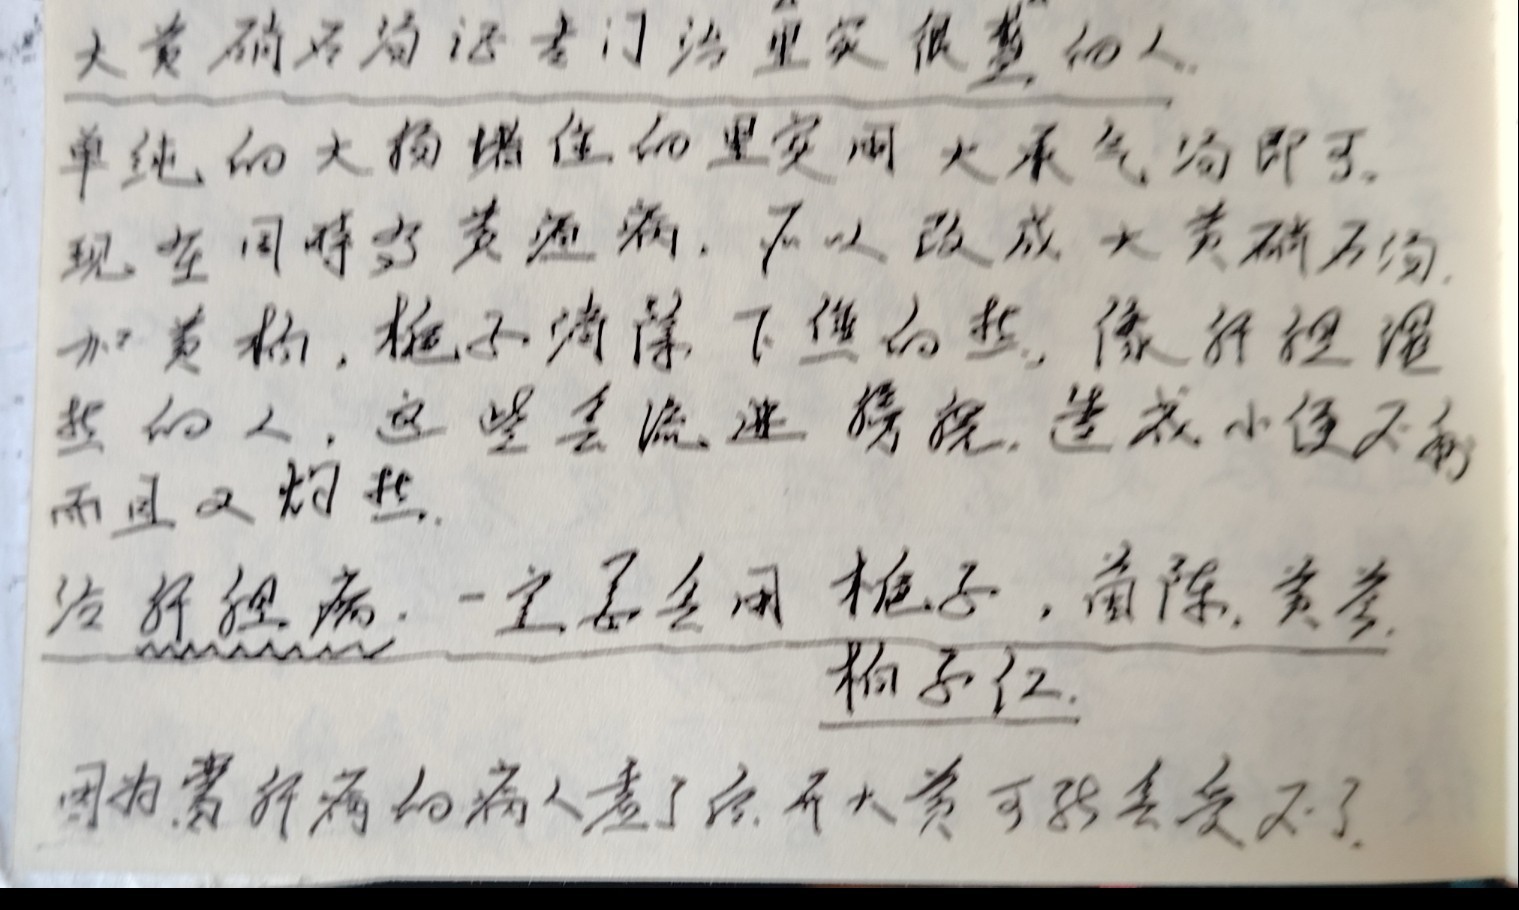 大黄硝石汤证专门治里实很热的人.
单纯的大肠堵住的里实用大承气汤即可.
现在同时有黄疸病.所以改成大黄硝石汤.
加黄柏,栀子清除下焦的热,像肝胆湿
热的人,这些会流进膀胱.造成小便不利
而且又灼热.
治肝胆病.一定要会用栀子,茵陈.黄芩.
柏子仁.
因为肝病的病人虚了后.开大黄可能会受不了.